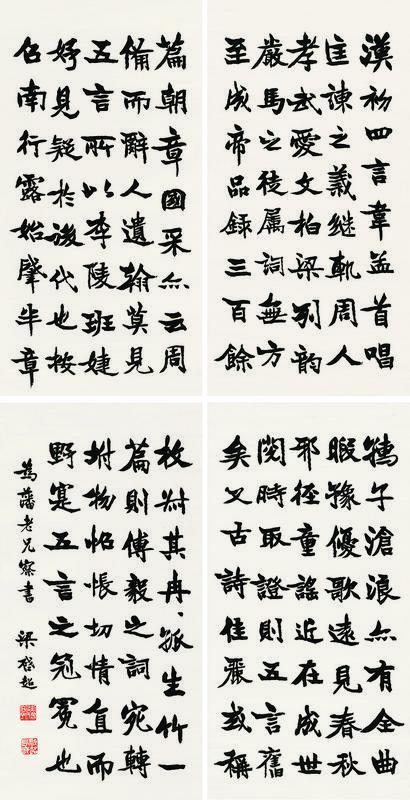 漢初四言韋孟首唱
匡諫之義継軌周人
孝武愛文柏梁列韵
嚴馬之徒属詞無方
至成帝品録三百餘
篇朝章國采亦云周
備而辭人遺翰莫見
五言所以李陵班婕
妤見疑於後代也按
召南行露始肈半章
孺子滄浪亦有全曲
暇豫優歌遠見春秋
邪徑童謠近在成世
閱時取證則五言舊
矣又古詩佳麗或稱
枚叔其冉、孤生竹一
篇則傅毅之詞宛轉
附物怊悵切情直而
野寔五言之冠冕也
為藩老兄察書 梁啓超